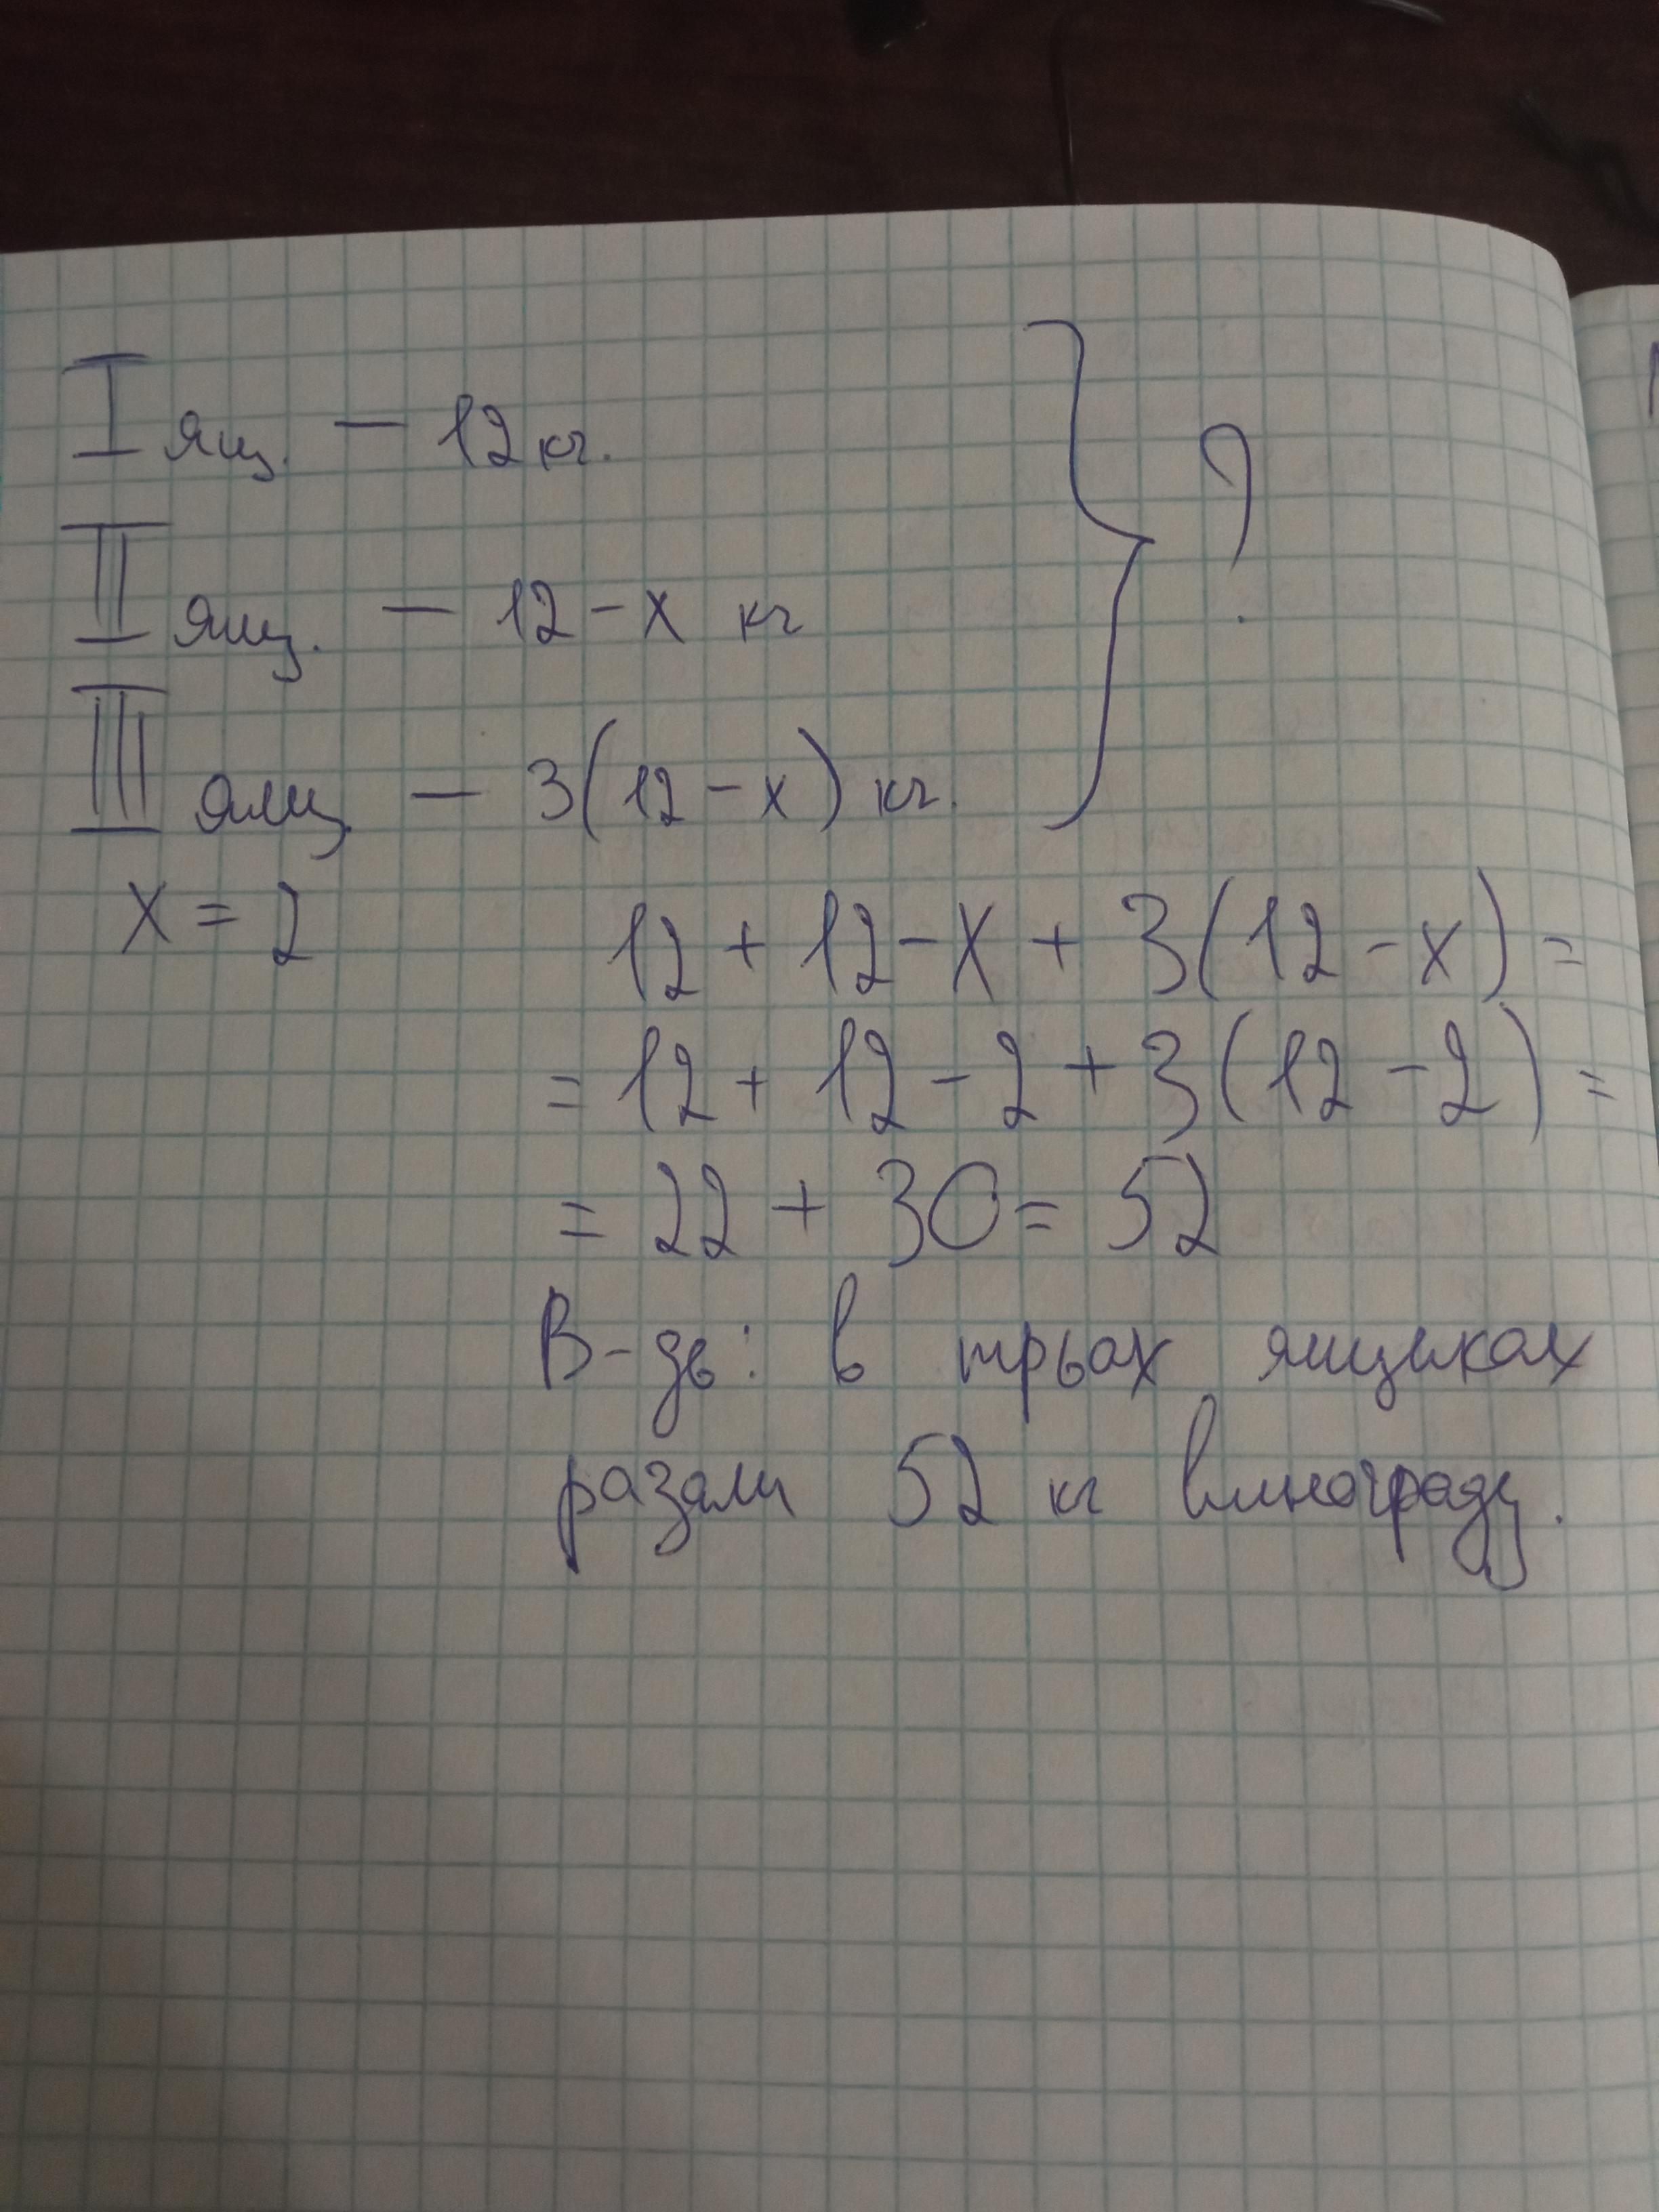 I ящ. — 12 кг.
II ящ. — 12 - x кг
III ящ. — 3(12 - x) кг.
?
x = 2
12 + 12 - x + 3(12 - x) =
= 12 + 12 - 2 + 3(12 - 2) =
= 22 + 30 = 52
В-дь: в трьох ящиках
разали 52 кг винограду.